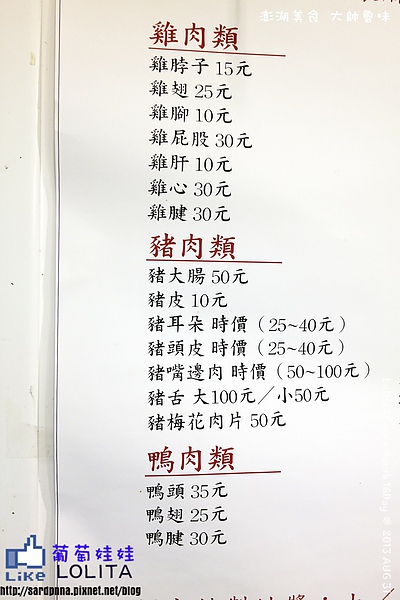 澎湖美食 大師魯味
雞肉類
雞脖子 15元
雞翅 25元
雞腳 10元
雞屁股 30元
雞肝 10元
雞心 30元
雞腱 30元
豬肉類
豬大腸 50元
豬皮 10元
豬耳朵 時價（25~40元）
豬頭皮 時價（25~40元）
豬嘴邊肉 時價（50~100元）
豬舌 大100元／小50元
豬梅花肉片 50元
鴨肉類
鴨頭 35元
鴨翅 25元
鴨腱 30元
Like 葡萄娃娃
LOLITA
http://sardpnna.pixnet.net/blog